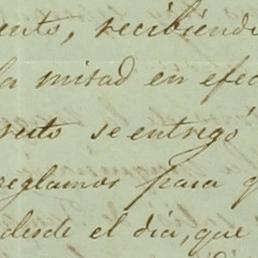 ento, recibiendo
la mitad en efec
resto se entregó
reglamos para q
desde el dia, que